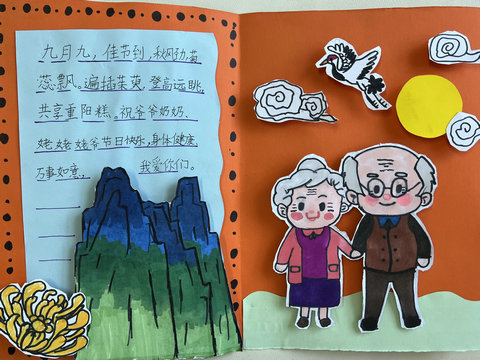 九月九，佳节到，秋风劲，菊
蕊飘。遍插茱萸，登高远眺，
共享重阳糕。祝爷爷奶奶、
姥姥姥爷节日快乐，身体健康，
万事如意。 我爱你们。